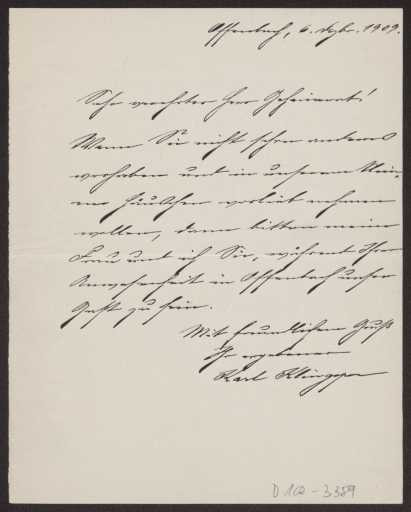 Offenbach, 6. Dezbr. 1909.
Sehr verehrter Herr Geheimrat!
Wenn Sie nicht schon anderes
vorhaben und in unserem klei-
nen Häuschen vorlieb nehmen
wollen, dann bitten meine
Frau und ich Sie, während Ihrer
Anwesenheit in Offenbach unser
Gast zu sein.
Mit freundlichem Gruß
Ihr ergebener
Karl Klingspor
D 102 - 3389